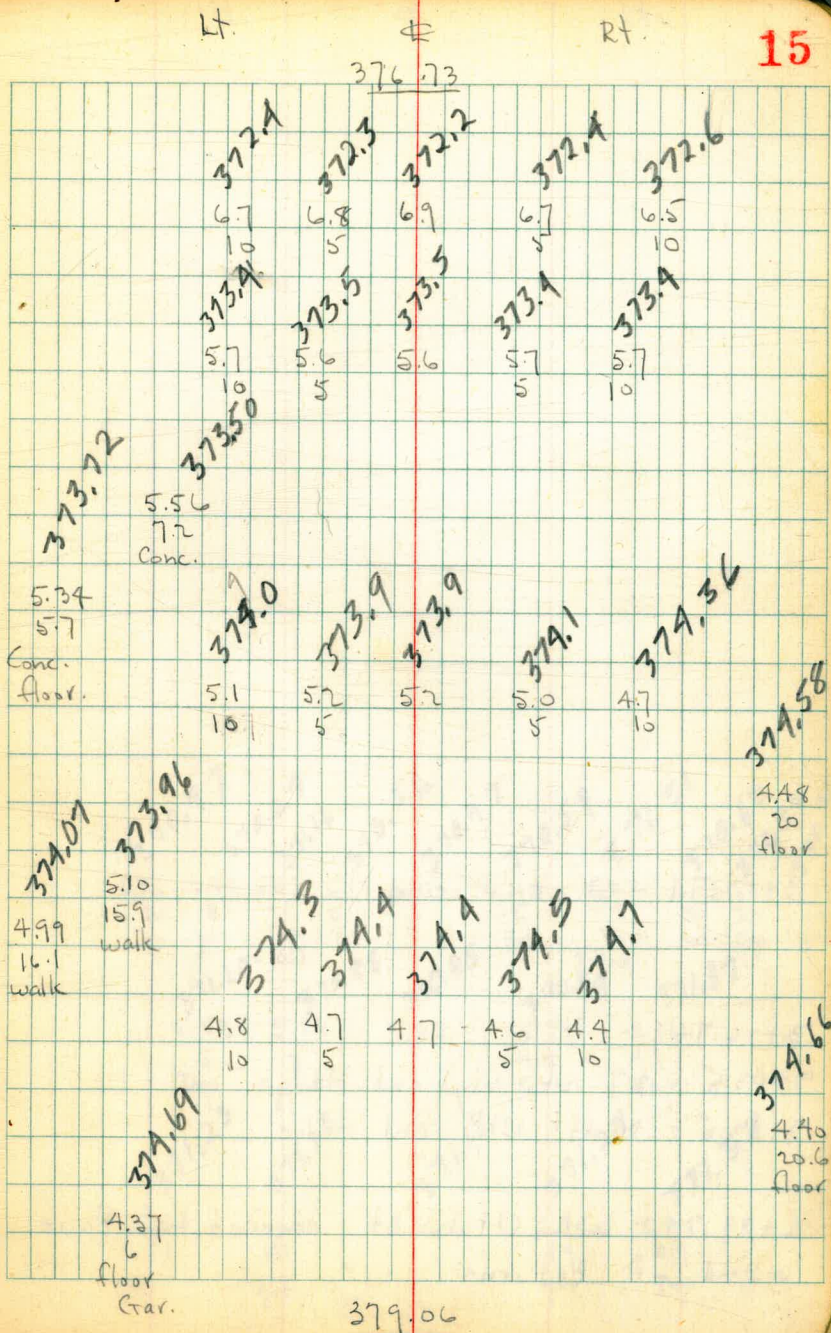 Lt. ℄ Rt. 15
376.73
372.4 372.3 372.2 372.4 372.6
6.7 6.8 6.9 6.7 6.5
10 5 5 10
373.4 373.5 373.5 373.4 373.4
5.7 5.6 5.6 5.7 5.7
10 5 5 10
373.50
5.56
7.2
Conc.
373.72
5.34
5.7
Conc.
floor.
374.0 373.9 373.9 374.1 374.36
5.1 5.2 5.2 5.0 4.7
10 5 5 10
374.58
4.48
20
floor
373.96
5.10
15.9
walk
374.07
4.99
16.1
walk
374.3 374.4 374.4 374.5 374.7
4.8 4.7 4.7 4.6 4.4
10 5 5 10
374.66
4.40
20.6
floor
374.69
4.37
6
floor
Gar.
379.06